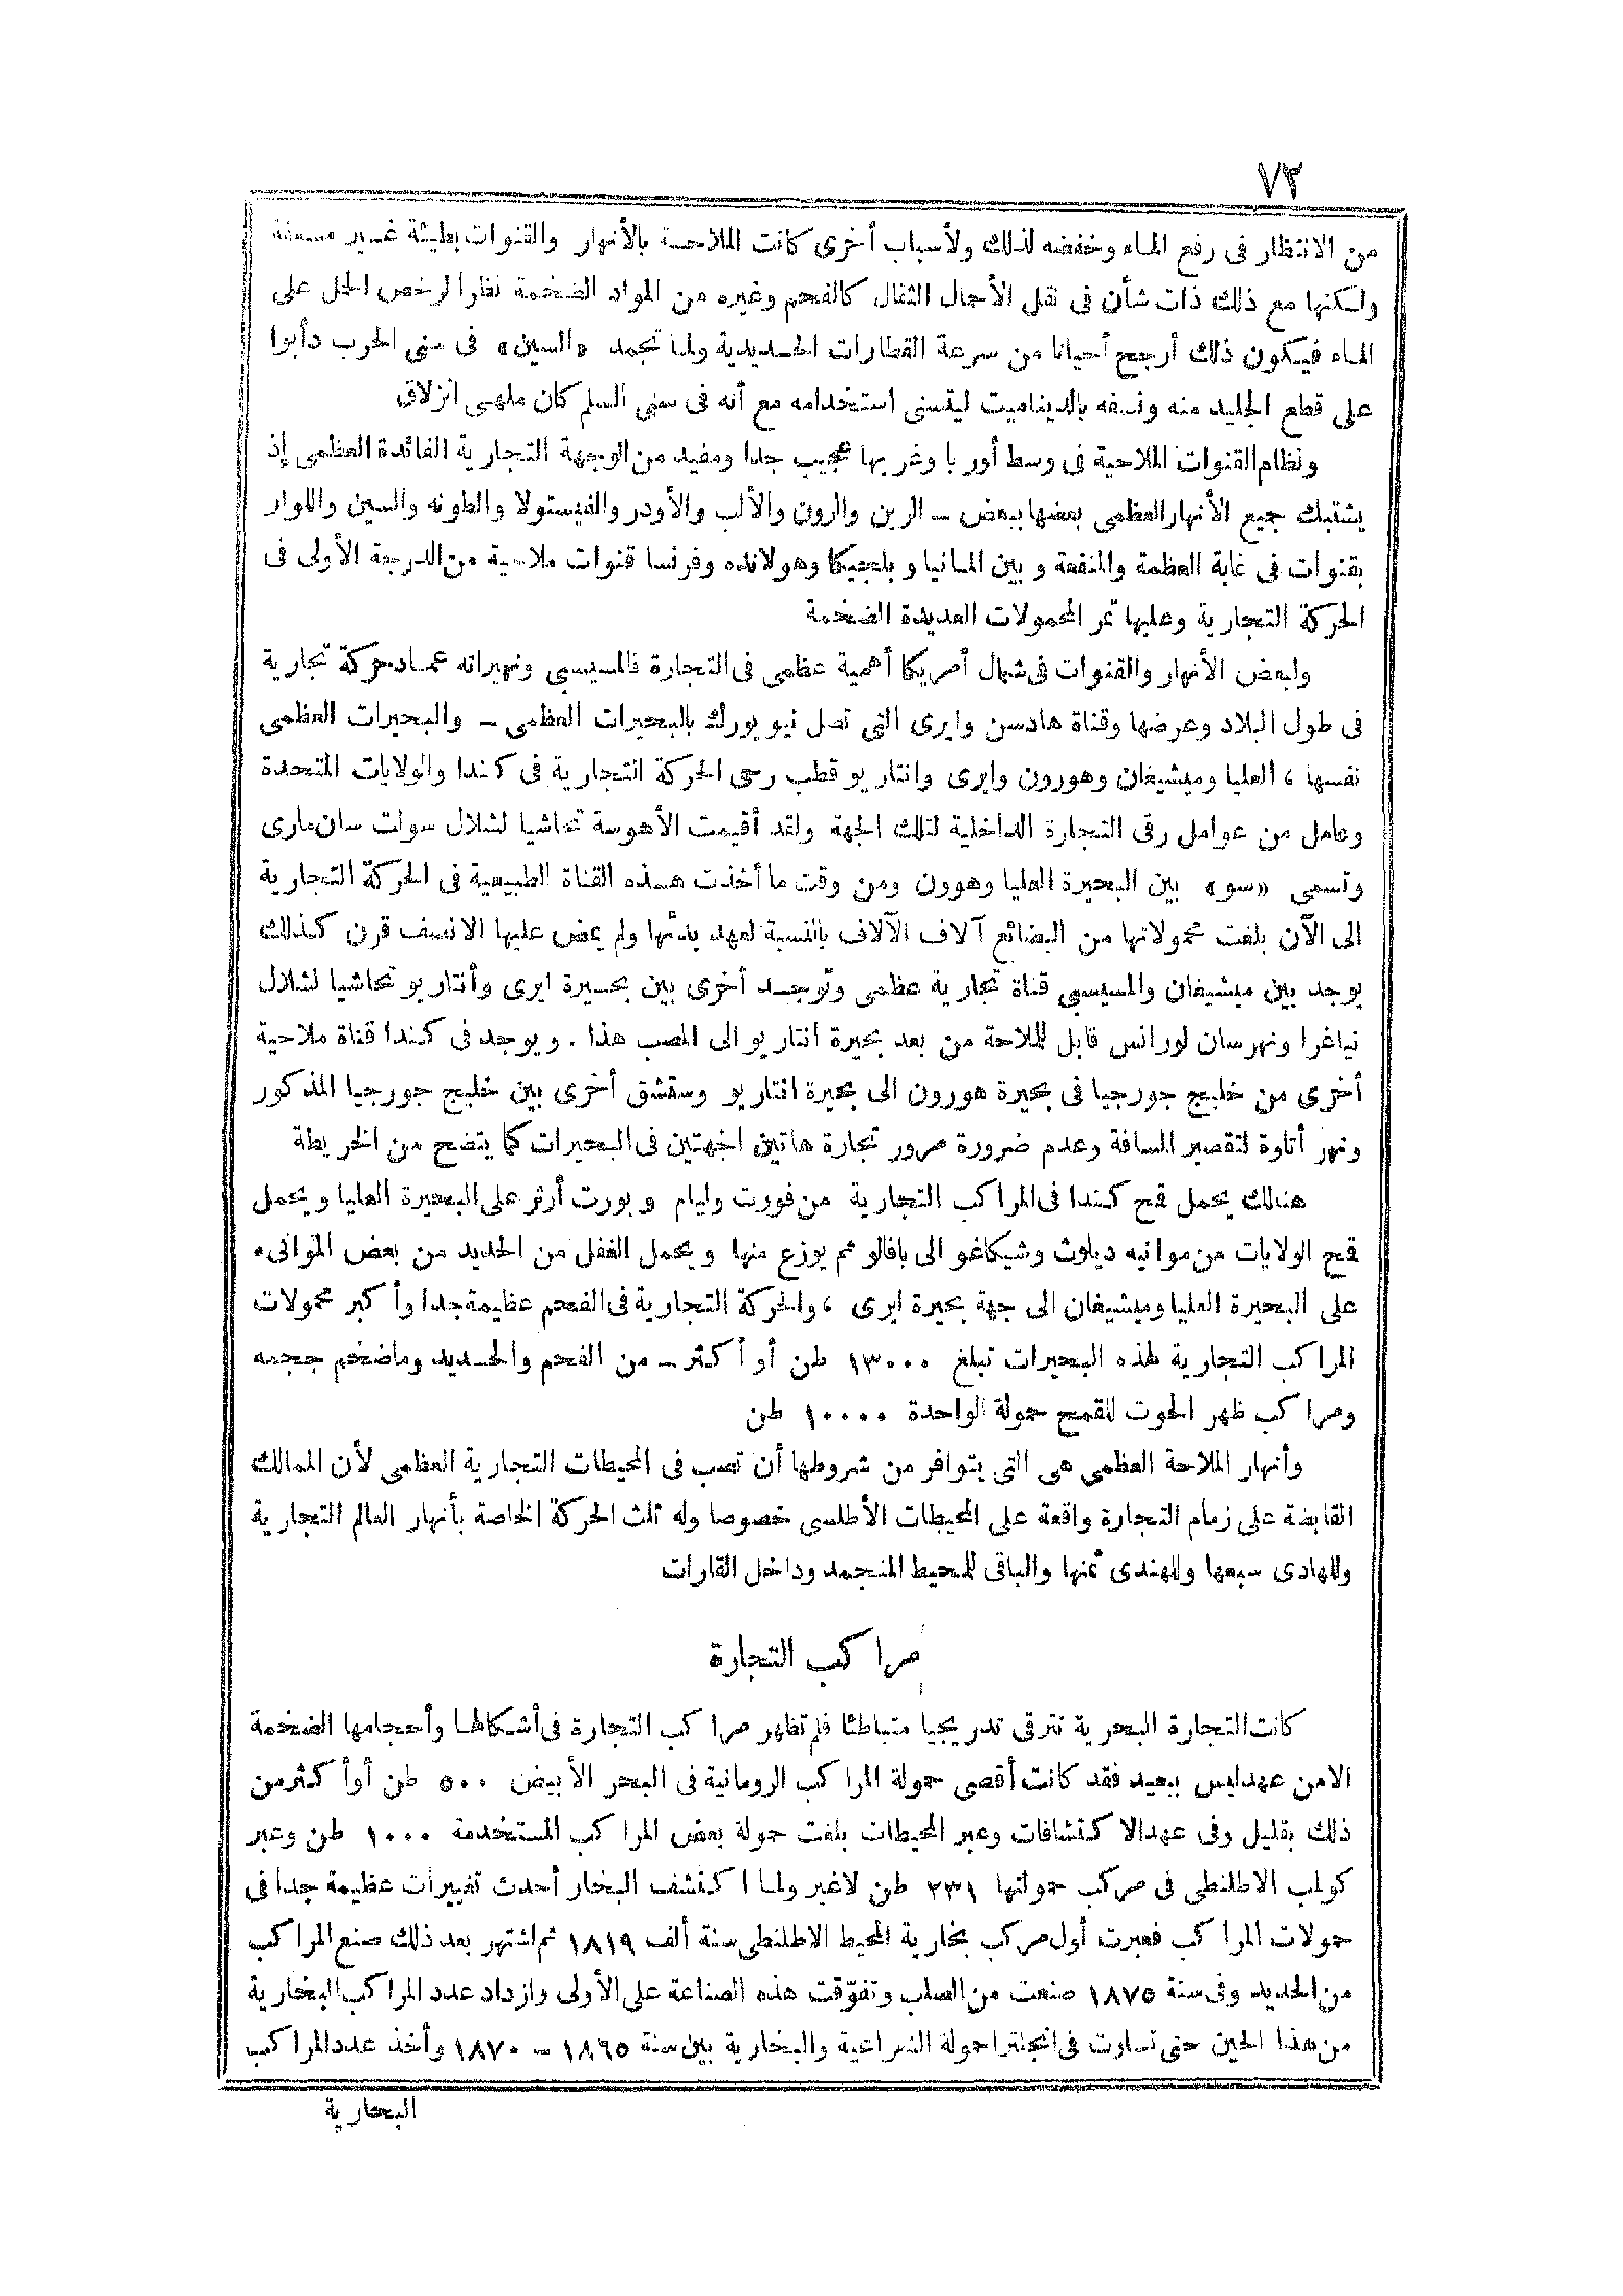 ٧٣
من الانتظار فى رفع الماء وخفضه لذلك ولأسباب أخرى كانت الملاحة بالأنهار والقنوات بطيئة غير مسعفة
ولكنها مع ذلك ذات شأن فى نقل الأحمال الثقال كالفحم وغيره من المواد الضخمة نظارا لرخص الحمل على
الماء فيكون ذلك أرجح أحيانا من سرعة القطارات الحديدية ولما تجمد «السين» فى سنى الحرب دأبوا
على قطع الجليد منه ونسفه بالديناميت ليتسنى استخدامه مع أنه فى سنى السلم كان ملهى انزلاق
ونظام القنوات الملاحية فى وسط أوربا وغربها عجيب جدا ومفيد من الوجهة التجارية الفائدة العظمى إذ
يشتبك جميع الأنهار العظمى بعضها ببعض - الرين والرون والألب والأودر والفيستولا والطونه والسين واللوار
بقنوات فى غاية العظمة والمنفعة وبين المانيا وبلجيكا وهولانده وفرنسا قنوات ملاحية من الدرجة الأولى فى
الحركة التجارية وعليها تمر المحمولات العديدة الضخمة
ولبعض الأنهار والقنوات فى شمال أمريكا أهمية عظمى فى التجارة فالمسيسبى ونهيراته عماد حركة تجارية
فى طول البلاد وعرضها وقناة هادسن وايرى التى تصل نيو يورك بالبحيرات العظمى - والبحيرات العظمى
نفسها ، العليا وميشيغان وهورون وايرى وانتاريو قطب رحى الحركة التجارية فى كندا والولايات المتحدة
وعامل من عوامل رقى التجارة الداخلية لتلك الجهة ولقد أقيمت الأهوسة تحاشيا لشلال سولت سان مارى
وتسمى «سو» بين البحيرة العليا وهوون ومن وقت ما أخذت هذه القناة الطبيعية فى الحركة التجارية
الى الآن بلغت محمولاتها من البضائع آلاف الآلاف بالنسبة لعهد بدئها ولم يمض عليها الا نصف قرن كذلك
يوجد بين ميشيغان والمسيسبى قناة تجارية عظمى وتوجد أخرى بين بحيرة ايرى وأنتاريو تحاشيا لشلال
نياغرا ونهر سان لورانس قابل للملاحة من بعد بحيرة انتاريو الى المصب هذا . ويوجد فى كندا قناة ملاحية
أخرى من خليج جورجيا فى بحيرة هورون الى بحيرة انتاريو وستشق أخرى بين خليج جورجيا المذكور
ونهر أتاوة لتقصير المسافة وعدم ضرورة مرور تجارة هاتين الجهتين فى البحيرات كما يتضح من الخريطة
هنالك يحمل قمح كندا فى المراكب التجارية من فورت وليام وبورت أرثر على البحيرة العليا ويحمل
قمح الولايات من موانيه ديلوث وشيكاغو الى بافالو ثم يوزع منها ويحمل الغفل من الحديد من بعض الموانىء
على البحيرة العليا وميشيغان الى جهة بحيرة ايرى ، والحركة التجارية فى الفحم عظيمة جدا وأكبر محمولات
المراكب التجارية لهذه البحيرات تبلغ ١٣٠٠٠ طن أو أكثر - من الفحم والحديد وما ضخم حجمه
ومراكب ظهر الحوت للقمح حمولة الواحدة ١٠٠٠٠ طن
وأنهار الملاحة العظمى هى التى يتوافر من شروطها أن تصب فى المحيطات التجارية العظمى لأن الممالك
القابضة على زمام التجارة واقعة على المحيطات الأطلسى خصوصا وله ثلث الحركة الخاصة بأنهار العالم التجارية
وللهادى سبعها وللهندى ثمنها والباقى للمحيط المنجمد وداخل القارات
مراكب التجارة
كانت التجارة البحرية تترقى تدريجيا متباطئا فلم تظهر مراكب التجارة فى أشكالها وأحجامها الضخمة
الا من عهد ليس ببعيد فقد كانت أقصى حمولة المراكب الرومانية فى البحر الأبيض ٥٠٠ طن أو أكثر من
ذلك بقليل وفى عهد الاكتشافات وعبر المحيطات بلغت حمولة بعض المراكب المستخدمة ١٠٠٠ طن وعبر
كولمب الاطلنطى فى مركب حمولتها ٢٣١ طن لاغير ولما اكتشف البخار أحدث تغييرات عظيمة جدا فى
حمولات المراكب فعبرت أول مركب بخارية المحيط الاطلنطى سنة ألف ١٨١٩ ثم اشتهر بعد ذلك صنع المراكب
من الحديد وفى سنة ١٨٧٥ صنعت من الصلب وتفوّقت هذه الصناعة على الأولى وازداد عدد المراكب البخارية
من هذا الحين حتى تساوت فى انجلترا حمولة الشراعية والبخارية بين سنة ١٨٦٥ - ١٨٧٠ وأخذ عدد المراكب
البحارية